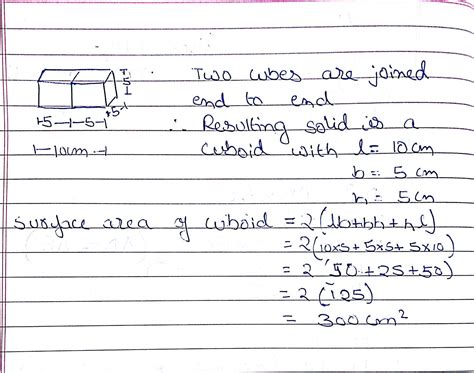 Two cubes are joined
end to end
∴ Resulting solid is a
cuboid with l = 10cm
b = 5 cm
h = 5 cm
5
+5—1—5-1 +5-1
1—10cm-1
Surface area of cuboid = 2(lb+bh+hl)
= 2(10×5+5×5+5×10)
= 2 (50+25+50)
= 2 (125)
= 300 cm²